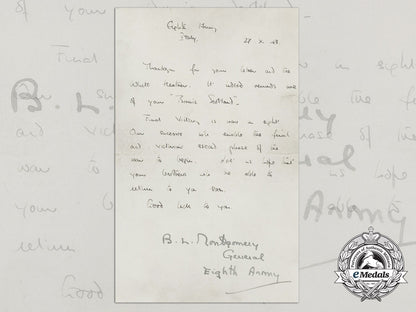 Eighth Army
Italy. 28 X 43
Thankyou for your letter and the
White Heather. It indeed reminds one
of your "Bonnie Scotland".
Final Victory is now in sight.
Our success will enable the final
and victorious phase of the
war to begin. Let us hope that
your brothers will be able to
return to you soon.
Good luck to you.
B. L. Montgomery
General
Eighth Army
eMedals